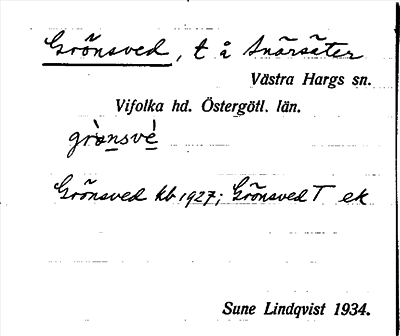 Grönsved, t å Snärsäter
Västra Hargs sn.
Vifolka hd. Östergötl. län.
grònsvé
Grönsved kb 1927; Grönsved T ek
Sune Lindqvist 1934.